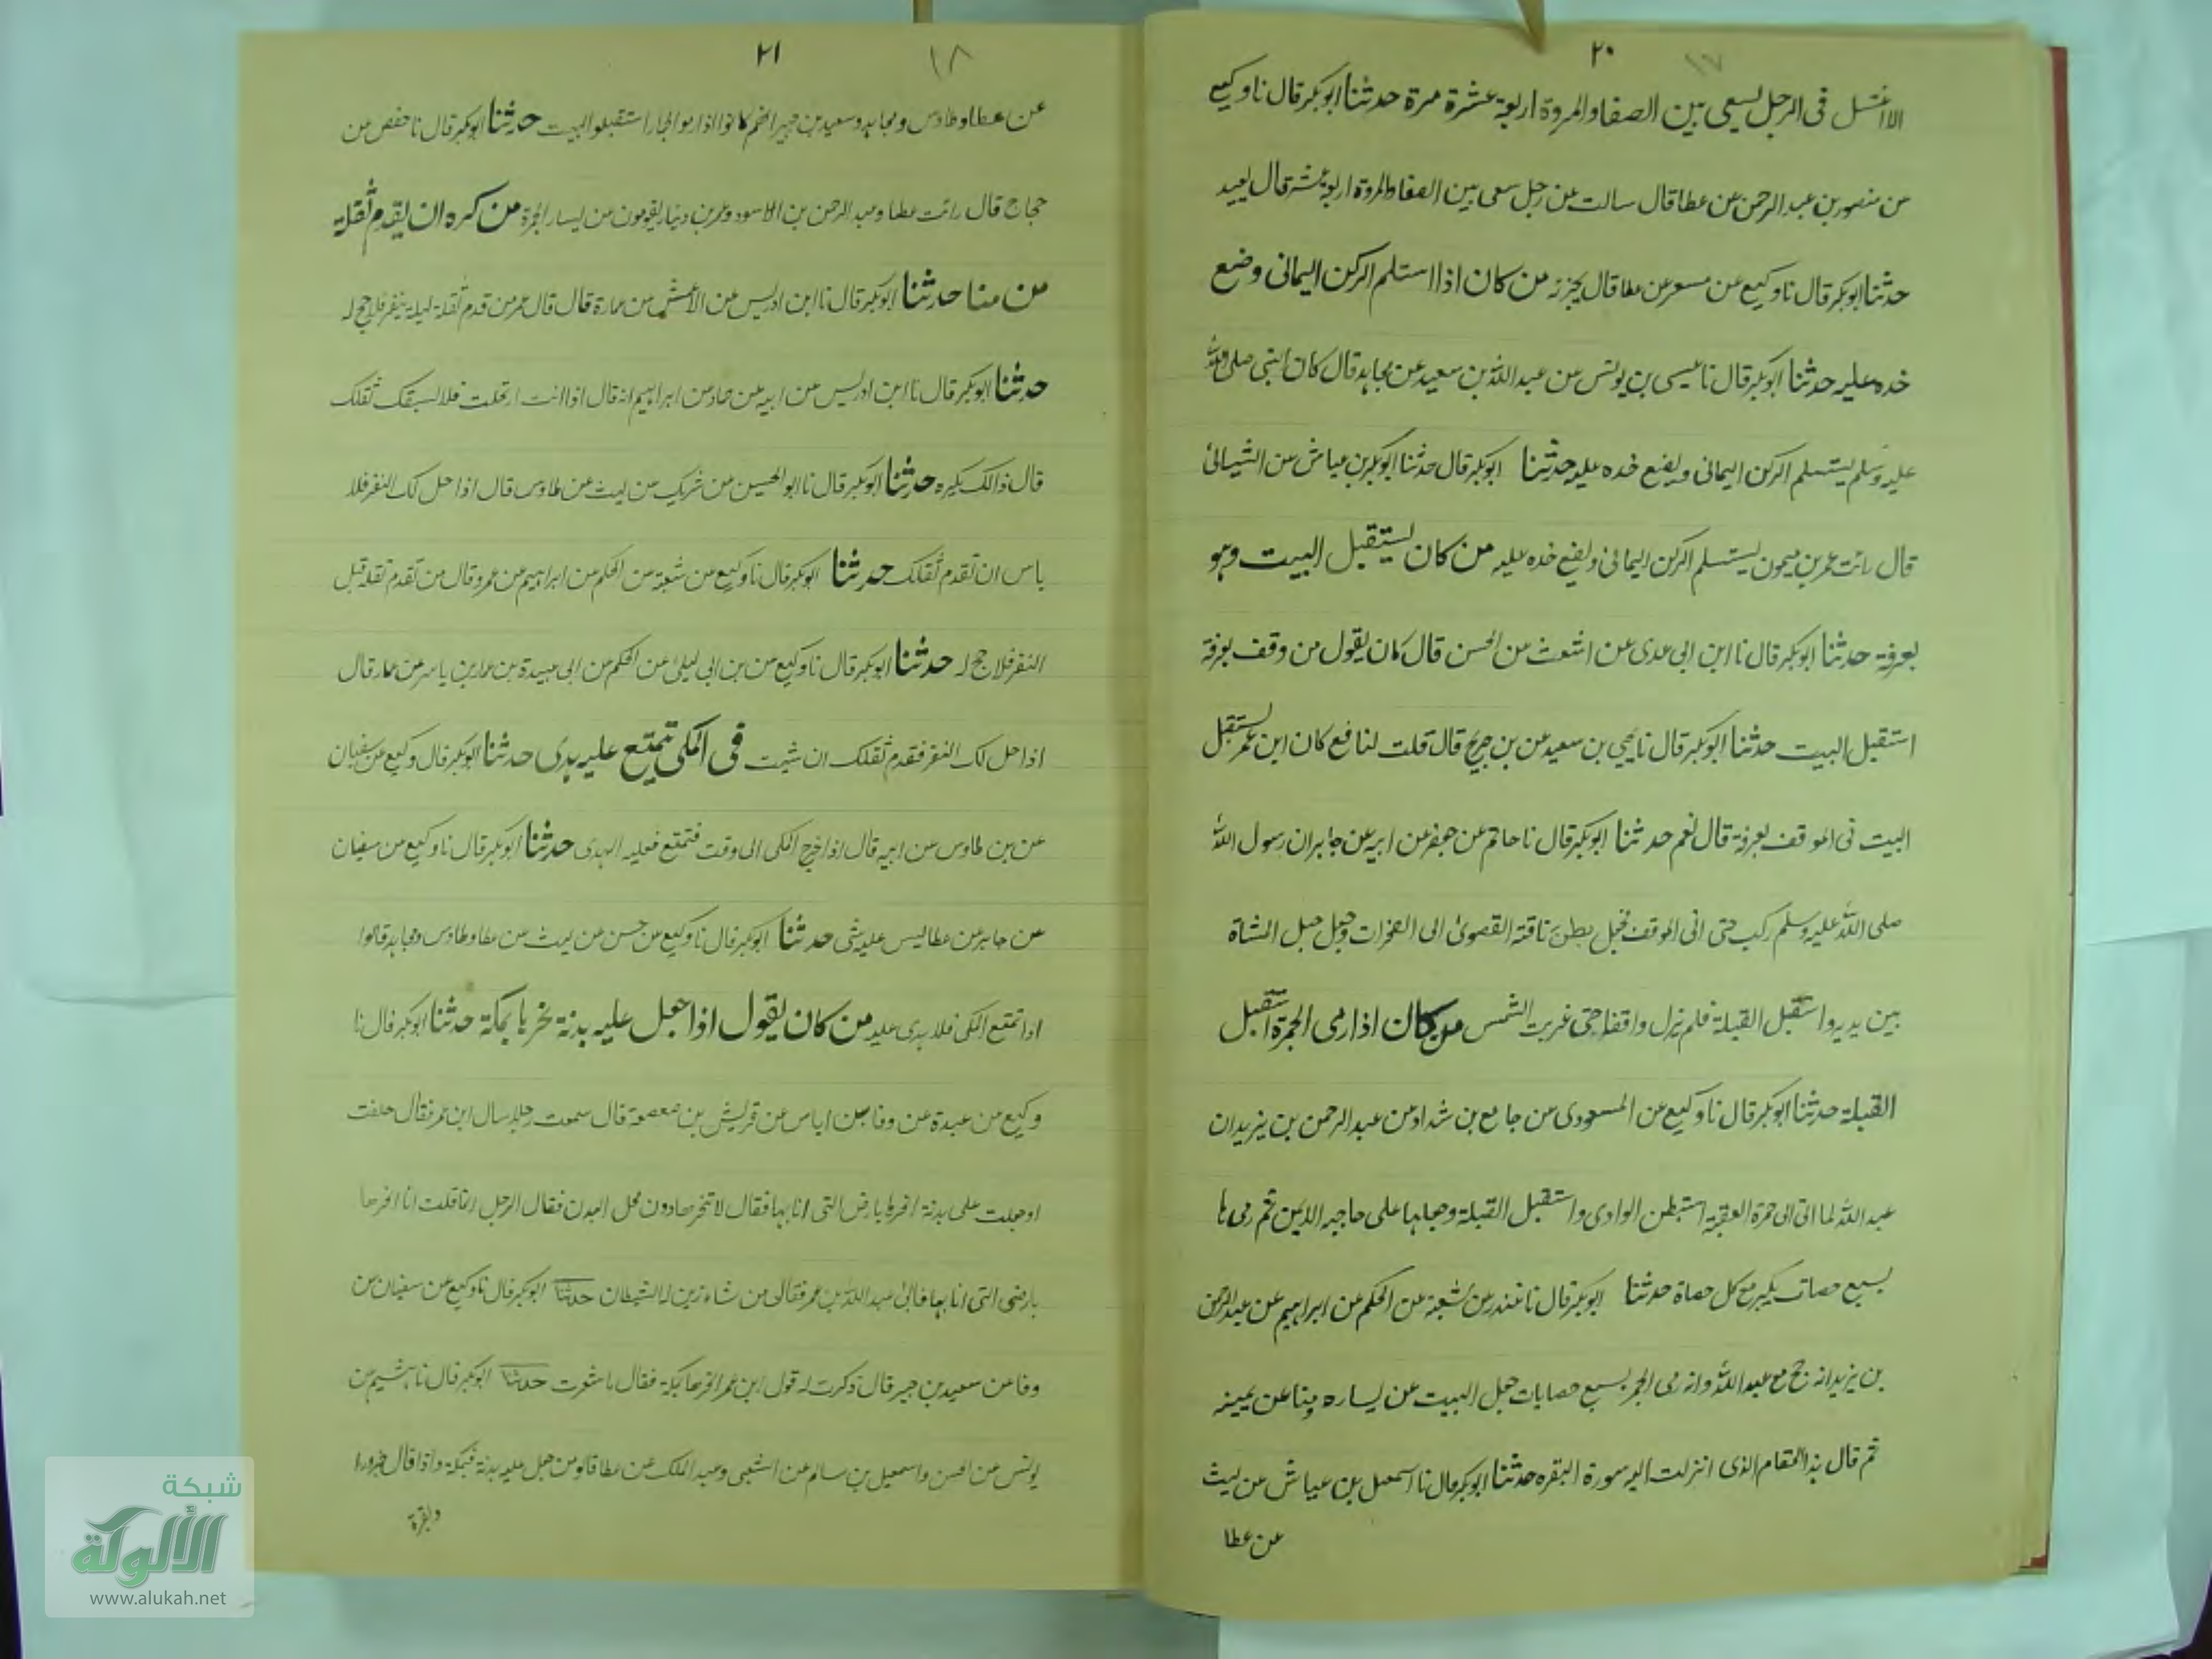 ٢٠
١٧
الا اغتسل فى الرجل يسعى بين الصفا والمروة اربعة عشرة مرة حدثنا ابوبكر قال نا وكيع
عن منصور بن عبد الرحمن عن عطا قال سالت عن رجل سعى بين الصفا والمروة اربعة عشر قال يعيد
حدثنا ابوبكر قال نا وكيع عن مسعر عن عطا قال يجزئه من كان اذا استلم الركن اليمانى وضع
خده عليه حدثنا ابوبكر قال نا عيسى بن يونس عن عبد الله بن سعيد عن مجاهد قال كان النبى صلى الله
عليه وسلم يستلم الركن اليمانى ويضع خده عليه حدثنا ابوبكر قال حدثنا ابوبكر بن عياش عن الشيبانى
قال رائت عمر بن ميمون يستلم الركن اليمانى ويضع خده عليه من كان يستقبل البيت وهو
بعرفة حدثنا ابوبكر قال نا ابن ابى عدى عن اشعث عن الحسن قال كان يقول من وقف بعرفة
استقبل البيت حدثنا ابوبكر قال نا يحيى بن سعيد عن بن جريج قال قلت لنافع كان ابن عمر يستقبل
البيت فى الموقف بعرفة قال نعم حدثنا ابوبكر قال نا حاتم عن جعفر عن ابيه عن جابر ان رسول الله
صلى الله عليه وسلم ركب حتى اتى الموقف فجعل بطن ناقته القصوى الى الصخرات وجعل حبل المشاة
بين يديه واستقبل القبلة فلم يزل واقفا حتى غربت الشمس من كان اذا رمى الجمرة استقبل
القبلة حدثنا ابوبكر قال نا وكيع عن المسعودى عن جامع بن شداد عن عبد الرحمن بن يزيد ان
عبد الله لما اتى الى جمرة العقبة استبطن الوادى واستقبل القبلة وجعلها على حاجبه الايمن ثم رمى ها
بسبع حصات يكبر مع كل حصاة حدثنا ابوبكر قال نا غندر عن شعبة عن الحكم عن ابراهيم عن عبد الرحمن
بن يزيد انه حج مع عبد الله وانه رمى الجمر بسبع حصايات جعل البيت عن يساره ومنا عن يمينه
ثم قال هذا المقام الذى انزلت اليه سورة البقره حدثنا ابوبكر قال نا اسمعيل بن عياش عن ليث
عن عطا
٢١
١٨
عن عطا وطاوس ومجاهد وسعيد بن جبير انهم كانوا اذا رموا الجمار استقبلوا البيت حدثنا ابوبكر قال نا حفص عن
حجاج قال رائت عطا وعبد الرحمن بن الاسود وعمر بن دينار يقومون من يسار الجمرة من كره ان يقدم ثقله
من منا حدثنا ابوبكر قال نا ابن ادريس عن الاعمش عن عمارة قال قال عمر من قدم ثقله ليلة ينفر فلا حج له
حدثنا ابوبكر قال نا ابن ادريس عن ابيه عن حماد عن ابراهيم انه قال اذا انت ارتحلت فلا يسبقك ثقلك
قال ذالك يكره حدثنا ابوبكر قال نا ابو الحسين عن شريك عن ليث عن طاوس قال اذا حل لك النفر فلا
باس ان تقدم ثقلك حدثنا ابوبكر قال نا وكيع عن شعبة عن الحكم عن ابراهيم عن عمر وقال من تقدم ثقله قبل
النفر فلا حج له حدثنا ابوبكر قال نا وكيع عن بن ابى ليلى عن الحكم عن ابى عبيدة بن عمار بن ياسر عن عمار قال
اذا حل لك النفر فقدم ثقلك ان شيت فى المكى يتمتع عليه هدى حدثنا ابوبكر قال وكيع عن سفيان
عن بن طاوس عن ابيه قال اذا خرج المكى الى وقت فتمتع فعليه الهدى حدثنا ابوبكر قال نا وكيع عن سفيان
عن جابر عن عطا ليس عليه شى حدثنا ابوبكر قال نا وكيع عن حسن عن ليث عن عطا وطاوس ومجاهد قالوا
اذا تمتع المكى فلا هدى عليه من كان يقول اذا جعل عليه بدنة نحرها بمكة حدثنا ابوبكر قال نا
وكيع عن عبدة عن وفا بن اياس عن قريش بن صعصعة قال سمعت رجلا سال ابن عمر فقال حلفت
او جعلت على بدنة انحرها بارض التى انا بها فقال لا تنحرها دون محل البدن فقال الرجل انما قلت انا انحرها
بارضى التى انا بها فابى عبد الله بن عمر فقال من شاء زين له الشيطان حدثنا ابوبكر قال نا وكيع عن سفيان عن
وفا عن سعيد بن جبير قال ذكرت له قول ابن عمر انحرها بمكة فقال ما شعرت حدثنا ابوبكر قال نا هشيم عن
يونس عن الحسن واسمعيل بن سالم عن الشعبى وعبد الملك عن عطا قالو من جعل عليه بدنة فبمكة واذا قال جزورا
وبقرة
شبكة
الألوكة
www.alukah.net